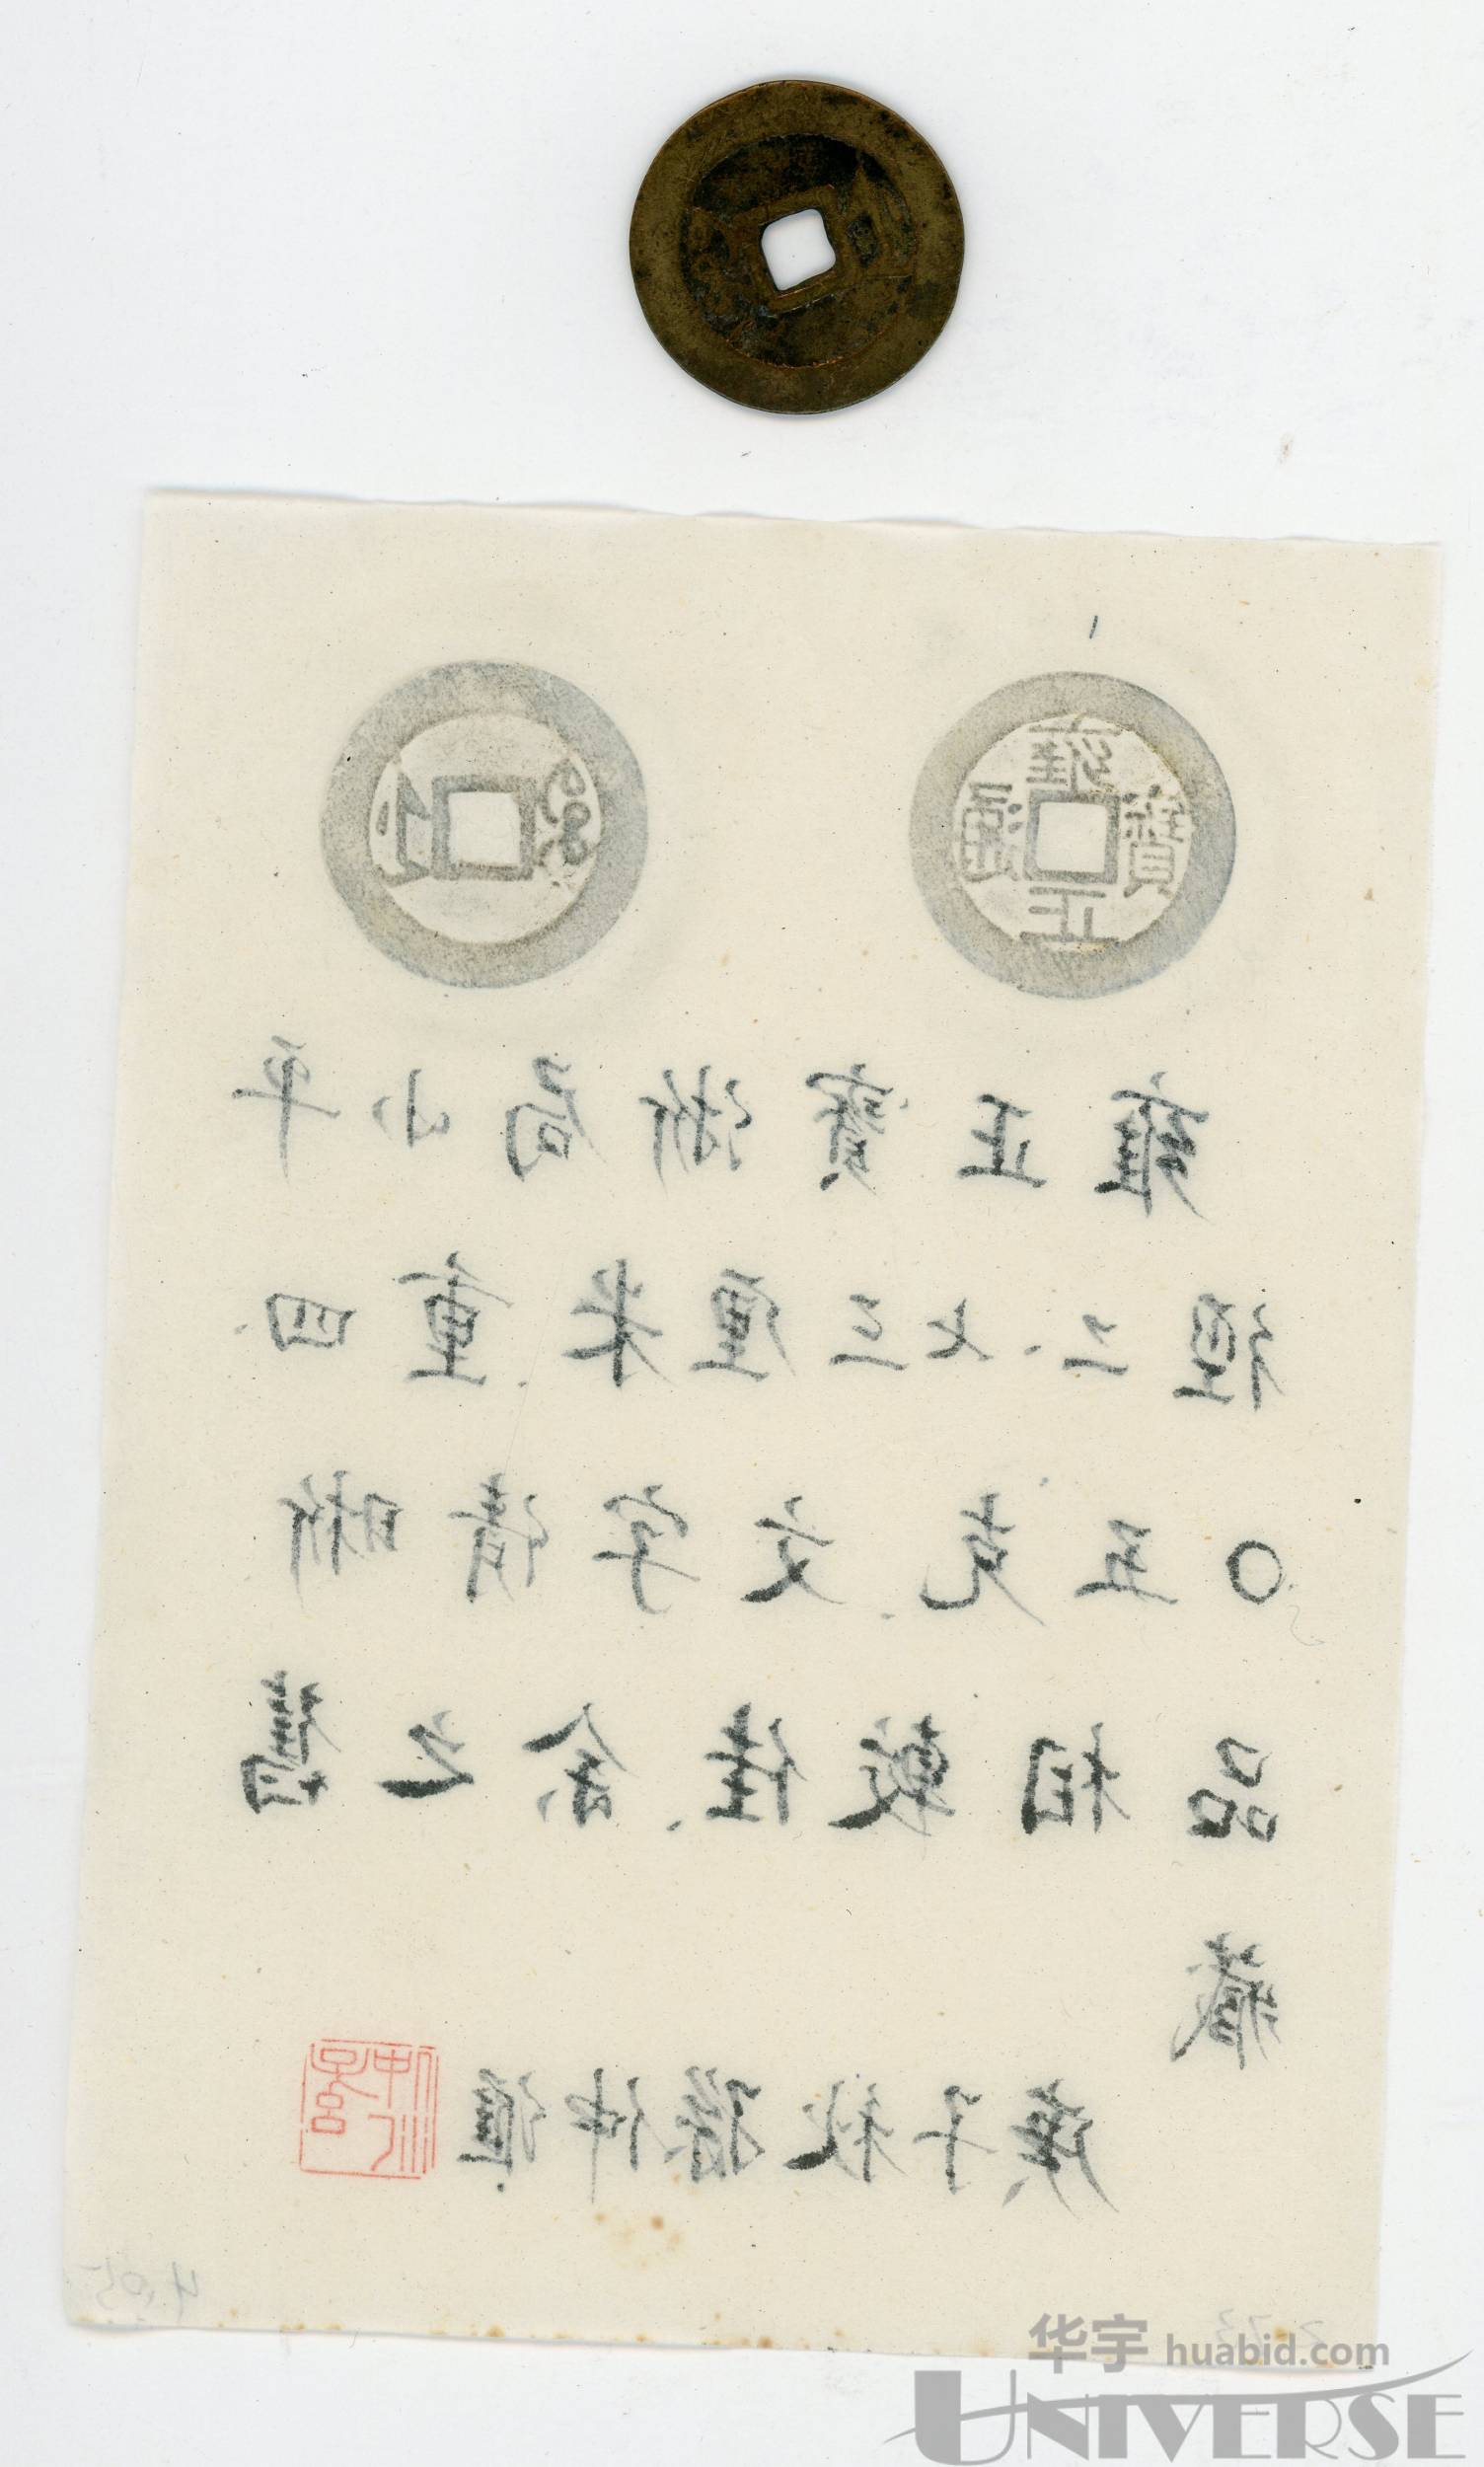 雍正通寶
雍正寳浙局小平
徑二.七三厘米.重四.
〇五克.文字清晰
品相較佳、余之舊
藏
庚子秋孫仲匯
4.05
2.73
华宇 huabid.com
UNIVERSE